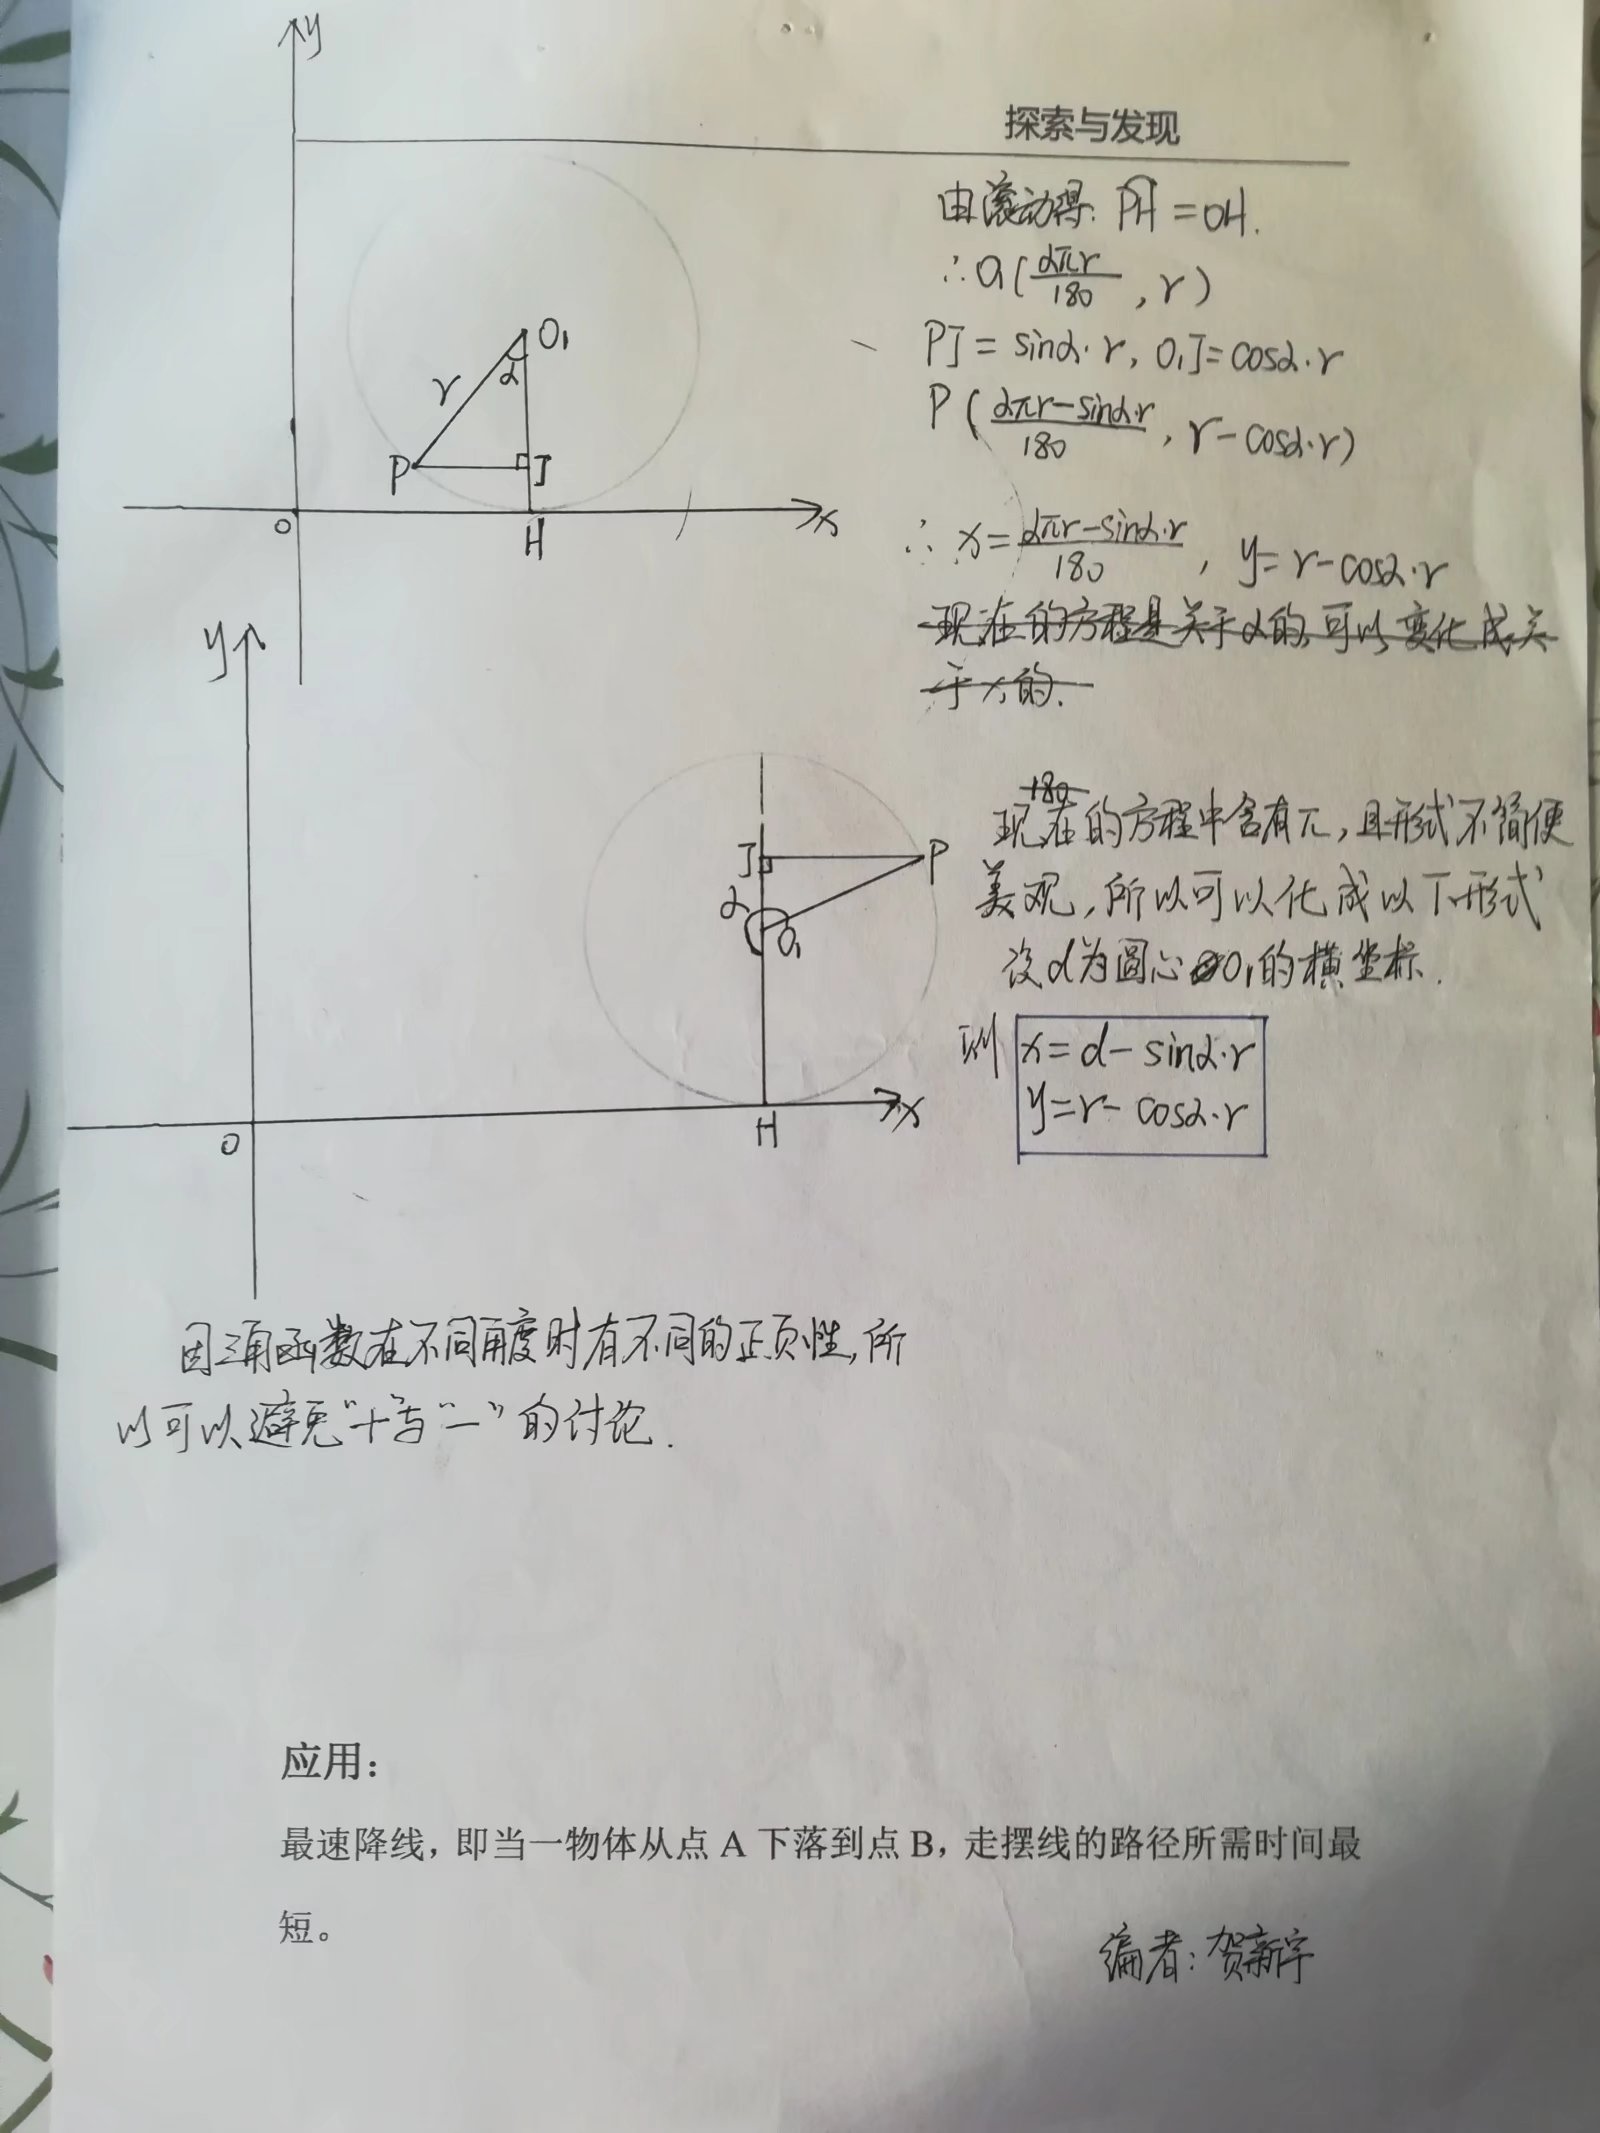 探索与发现
y
O₁
α
r
P
J
O
H
x
由滚动得: P͡H = OH.
∴O₁(απr/180, r)
PJ = sinα·r, O₁J = cosα·r
P(απr-sinα·r/180, r-cosα·r)
∴ x = απr-sinα·r/180, y = r-cosα·r
现在的方程是关于α的,可以变化成关
于x的.
y
J
P
α
O₁
O
H
x
180
现在的方程中含有π,且形式不简便
美观,所以可以化成以下形式
设d为圆心O₁的横坐标.
则 x = d - sinα·r
y = r - cosα·r
因三角函数在不同角度时有不同的正负性,所
以可以避免“+”与“-”的讨论.
应用:
最速降线,即当一物体从点 A 下落到点 B,走摆线的路径所需时间最
短。
编者:贺新宇